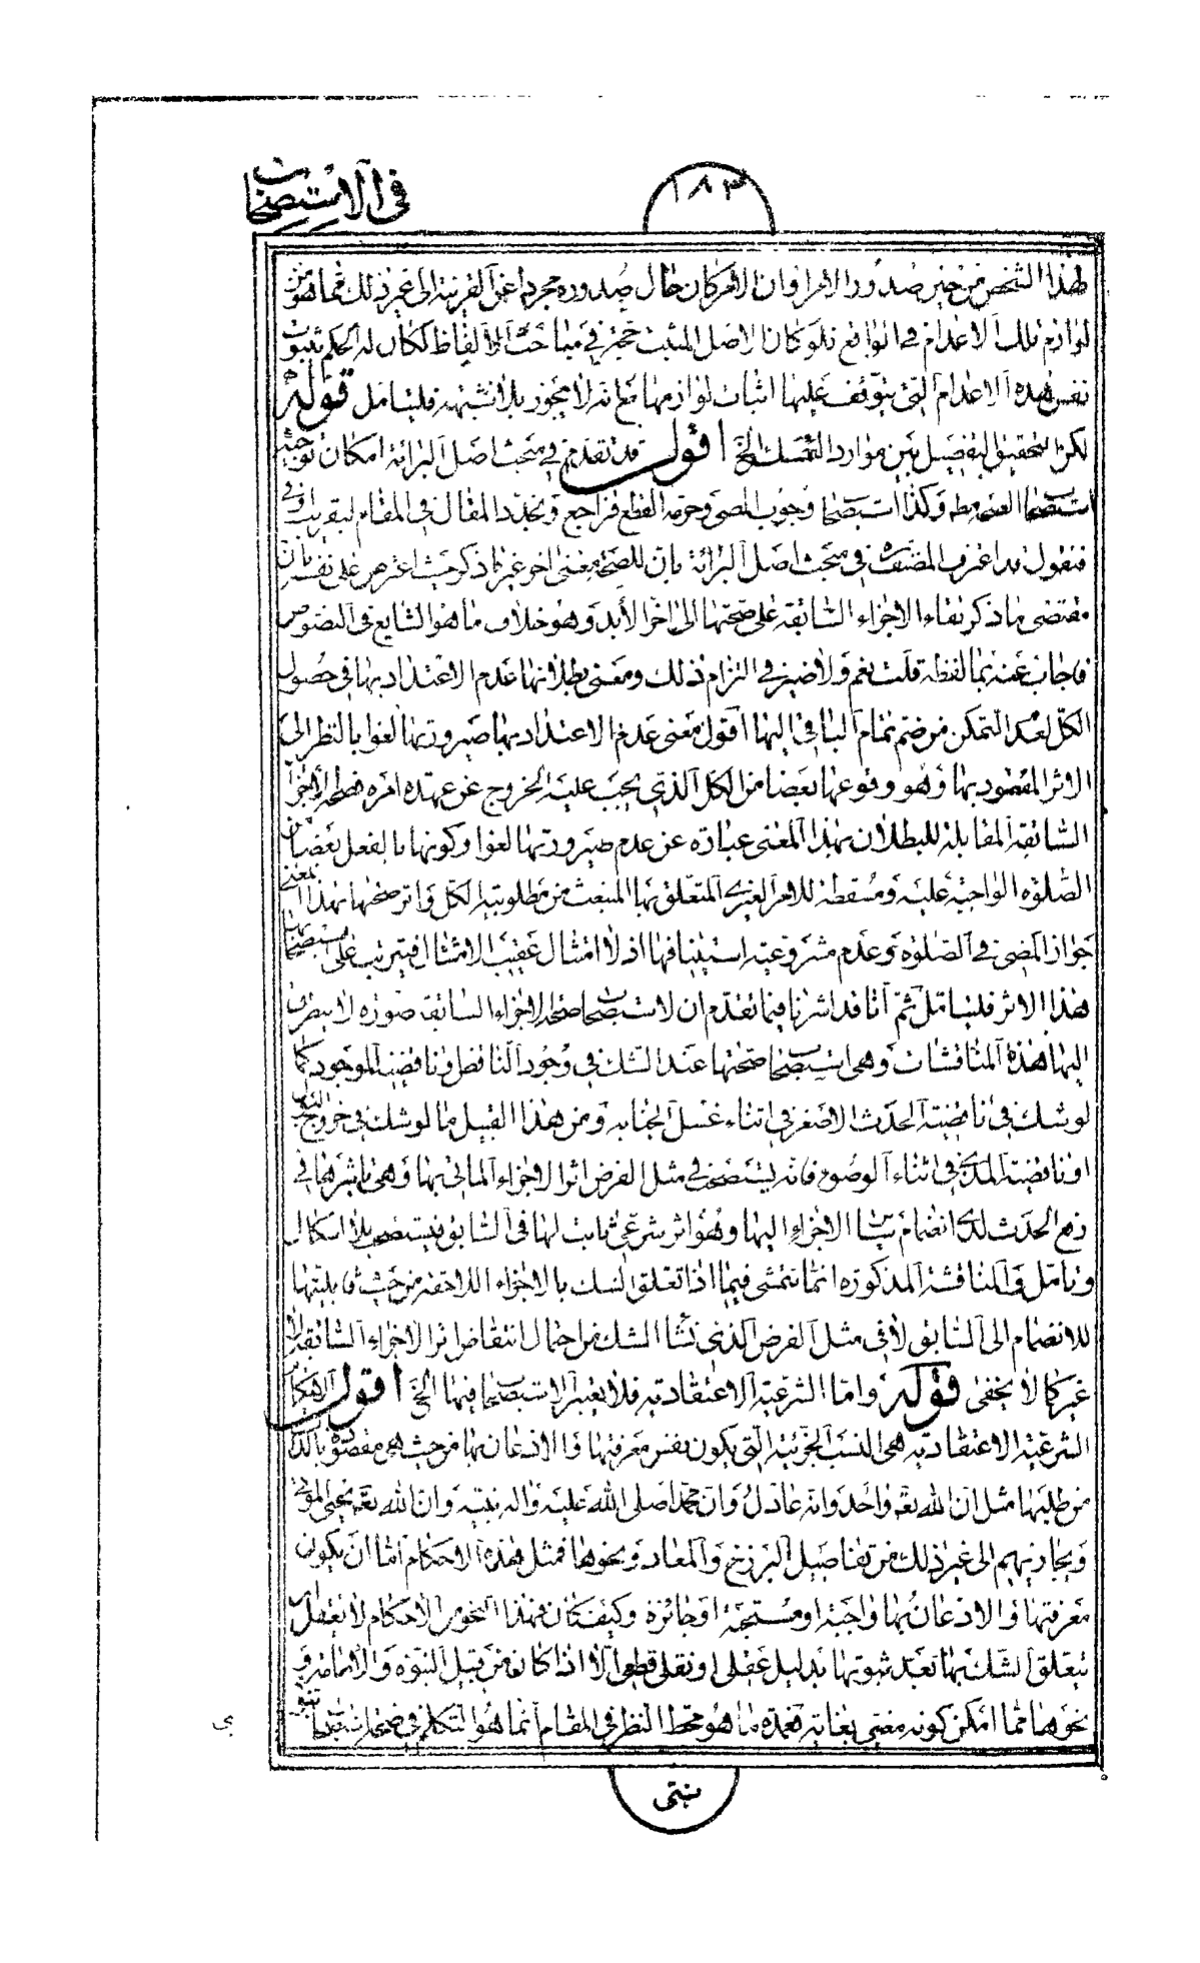 ١٨٣
في الاستصحاب
لهذا الشخص من حين صدور الامر او ان الامر كان حال صدوره مجردا عن القرينة الى غير ذلك مما هو من
لوازم تلك الاعدام في الواقع فلو كان الاصل المثبت حجة في مباحث الالفاظ لكان له الحكم بثبوت
نفس هذه الاعدام التي يتوقف عليها اثبات لوازمها مع انه لا يجوز بلا شبهة فليتامل قوله
لكن التحقيق التفصيل بين موارد التمسك الخ اقول قد تقدم في مبحث اصل البرائة امكان توجيه
استصحاب الصحة مطلقا وكذا استصحاب وجوب المضي وحرمة القطع فراجع ونجدد المقال في المقام لتقريب
فنقول قد اعترف المصنف ره في مبحث اصل البرائة بان للصحة معنى اخر غير ما ذكر حيث اعترض على نفسه بان
مقتضى ما ذكر بقاء الاجزاء السابقة على صحتها الى اخر الأبد وهو خلاف ما هو الشايع في النصوص
فاجاب عنه بما لفظه قلت نعم ولا ضير في التزام ذلك ومعنى بطلانها عدم الاعتداد بها في حصول
الكل لعدم التمكن من ضم تمام الباقي اليها اقول معنى عدم الاعتداد بها صيرورتها لغوا بالنظر الى
الاثر المقصود بها وهو وقوعها بعضا من الكل الذي يجب عليه الخروج عن عهدة امره فصحة الأجزاء
السابقة المقابلة للبطلان بهذا المعنى عبارة عن عدم صيرورتها لغوا وكونها بالفعل بعضا من
الصلوة الواجبة عليه ومسقطة للامر الغيري المتعلق بها المنبعث من مطلوبية الكل واثر صحتها بهذا المعنى
جواز المضي في الصلوة وعدم مشروعية استينافها اذ لا امتثال عقيب الامتثال فيترتب على استصحابها
هذا الاثر فليتامل ثم انا قد اشرنا فيما تقدم ان لاستصحاب صحة الاجزاء السابقة صورة لا يتطرق
اليها هذه المناقشات وهي استصحاب صحتها عند الشك في وجود الناقض او ناقضية الموجود كما
لو شك في ناقضية الحدث الاصغر في اثناء غسل الجنابة ومن هذا القبيل ما لو شك في خروج البول
او ناقضية المذي في اثناء الوضوء فانه يستصحب في مثل الفرض اثر الاجزاء الماتي بها وهي تاثيرها في
رفع الحدث لدى انضمام بقية الاجزاء اليها وهو اثر شرعي ثابت لها في السابق فيستصحب بلا اشكال
وتامل والمناقشة المذكورة انما تتمشى فيما اذا تعلق الشك بالاجزاء اللاحقة من حيث قابليتها
للانضمام الى السابق لا في مثل الفرض الذي نشا الشك من احتمال انتقاض اثر الاجزاء السابقة لا
غير كما لا يخفى قوله واما الشرعية الاعتقادية فلا يعتبر الاستصحاب فيها الخ اقول الاحكام
الشرعية الاعتقادية هي النسب الجزئية التي يكون نفس معرفتها والاذعان بها من حيث هي مقصودة بالذات
من طلبها مثل ان الله تعه واحد وانه عادل وان محمدا صلى الله عليه واله نبيه وان الله تعه يحيى الموتى
ويجازيهم الى غير ذلك من تفاصيل البرزخ والمعاد ونحوها فمثل هذه الاحكام اما ان يكون
معرفتها والاذعان بها واجبة او مستحبة او جائزة وكيف كان فهذا النحو من الأحكام لا يعقل ان
يتعلق الشك بها بعد ثبوتها بدليل عقلي او نقلي قطعي الا اذا كانت من قبيل النبوة والامامة و
نحوها مما امكن كونه مغيى بغاية فعمدة ما هو محط النظر في المقام انما هو التكلم في استصحاب نبوة